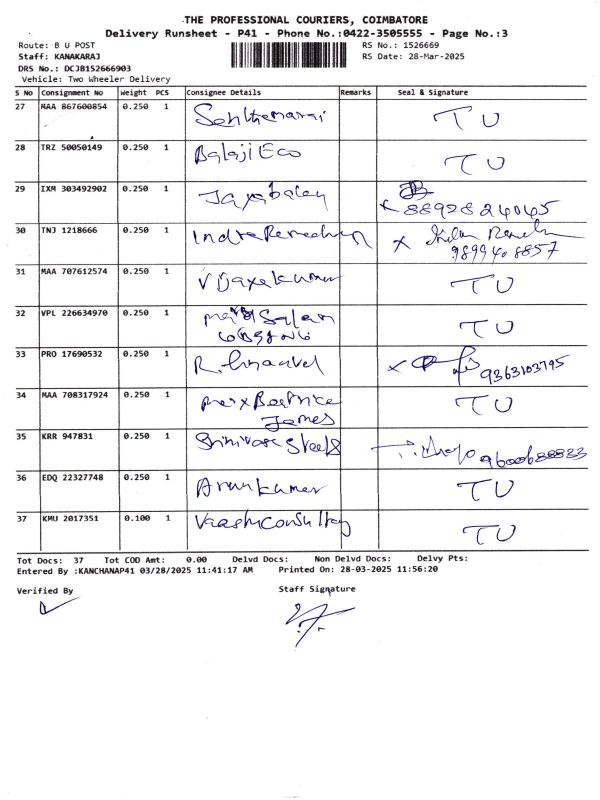 THE PROFESSIONAL COURIERS, COIMBATORE
Delivery Runsheet - P41 - Phone No.:0422-3505555 - Page No.:3
Route: B U POST RS No.: 1526669
Staff: KANAKARAJ RS Date: 28-Mar-2025
DRS No.: DCJB152666903
Vehicle: Two Wheeler Delivery
S No Consignment No Weight PCS Consignee Details Remarks Seal & Signature
27 MAA 867600854 0.250 1 TU
28 TRZ 50050149 0.250 1 Balaji Eco TU
29 IXM 303492902 0.250 1
30 TNJ 1218666 0.250 1 x
31 MAA 707612574 0.250 1 Vijayakumar TU
32 VPL 226634970 0.250 1 TU
33 PRO 17690532 0.250 1 x 9363103795
34 MAA 708317924 0.250 1 TU
James
35 KRR 947831 0.250 1 Srinivasa Steels
36 EDQ 22327748 0.250 1 Arunkumar TU
37 KMU 2017351 0.100 1 TU
Tot Docs: 37 Tot COD Amt: 0.00 Delvd Docs: Non Delvd Docs: Delvy Pts:
Entered By :KANCHANAP41 03/28/2025 11:41:17 AM Printed On: 28-03-2025 11:56:20
Verified By Staff Signature